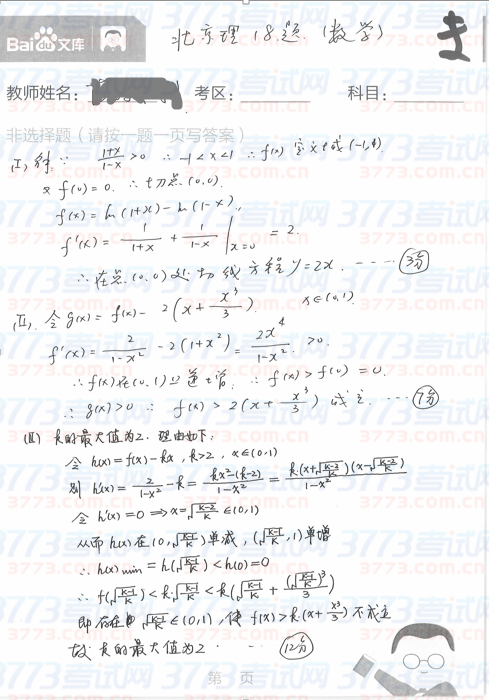 Baidu文库
北京理18题.(数学)
教师姓名: 考区: 科目:
非选择题（请按一题一页写答案）
(I) 解: ∵ (1+x)/(1-x) > 0 ∴ -1<x<1 ∴ f(x) 定义域(-1,1).
又 f(0)=0. ∴ 切点(0,0).
f(x)=ln(1+x)-ln(1-x).
f'(x)= 1/(1+x) + 1/(1-x) |x=0 = 2.
∴ 在点(0,0)处切线方程 y=2x. ---- 3分
(II). 令 g(x)=f(x)-2(x+x³/3). x∈(0,1).
f'(x)= 2/(1-x²) -2(1+x²)= 2x⁴/(1-x²) >0.
∴ f(x)在(0,1)上递增. ∴ f(x)>f(0)=0.
∴ g(x)>0 ∴ f(x)>2(x+x³/3) 成立. --- 7分
(III) k的最大值为2. 理由如下:
令 h(x)=f(x)-kx, k>2, x∈(0,1)
则 h'(x)= 2/(1-x²) -k= (kx²-(k-2))/(1-x²) = k(x+√((k-2)/k))(x-√((k-2)/k))/(1-x²)
令 h'(x)=0 ⇒ x=√((k-2)/k) ∈(0,1)
从而 h(x)在(0,√((k-2)/k))单减, (√((k-2)/k),1)单增
∴ h(x)min=h(√((k-2)/k))<h(0)=0
∴ f(√((k-2)/k))<k√((k-2)/k)<k(√((k-2)/k)+(√((k-2)/k))³/3)
即存在 √((k-2)/k)∈(0,1), 使 f(x)>k(x+x³/3)不成立
故 k的最大值为2. -- 12分
第 页
3773考试网
3773.com.cn